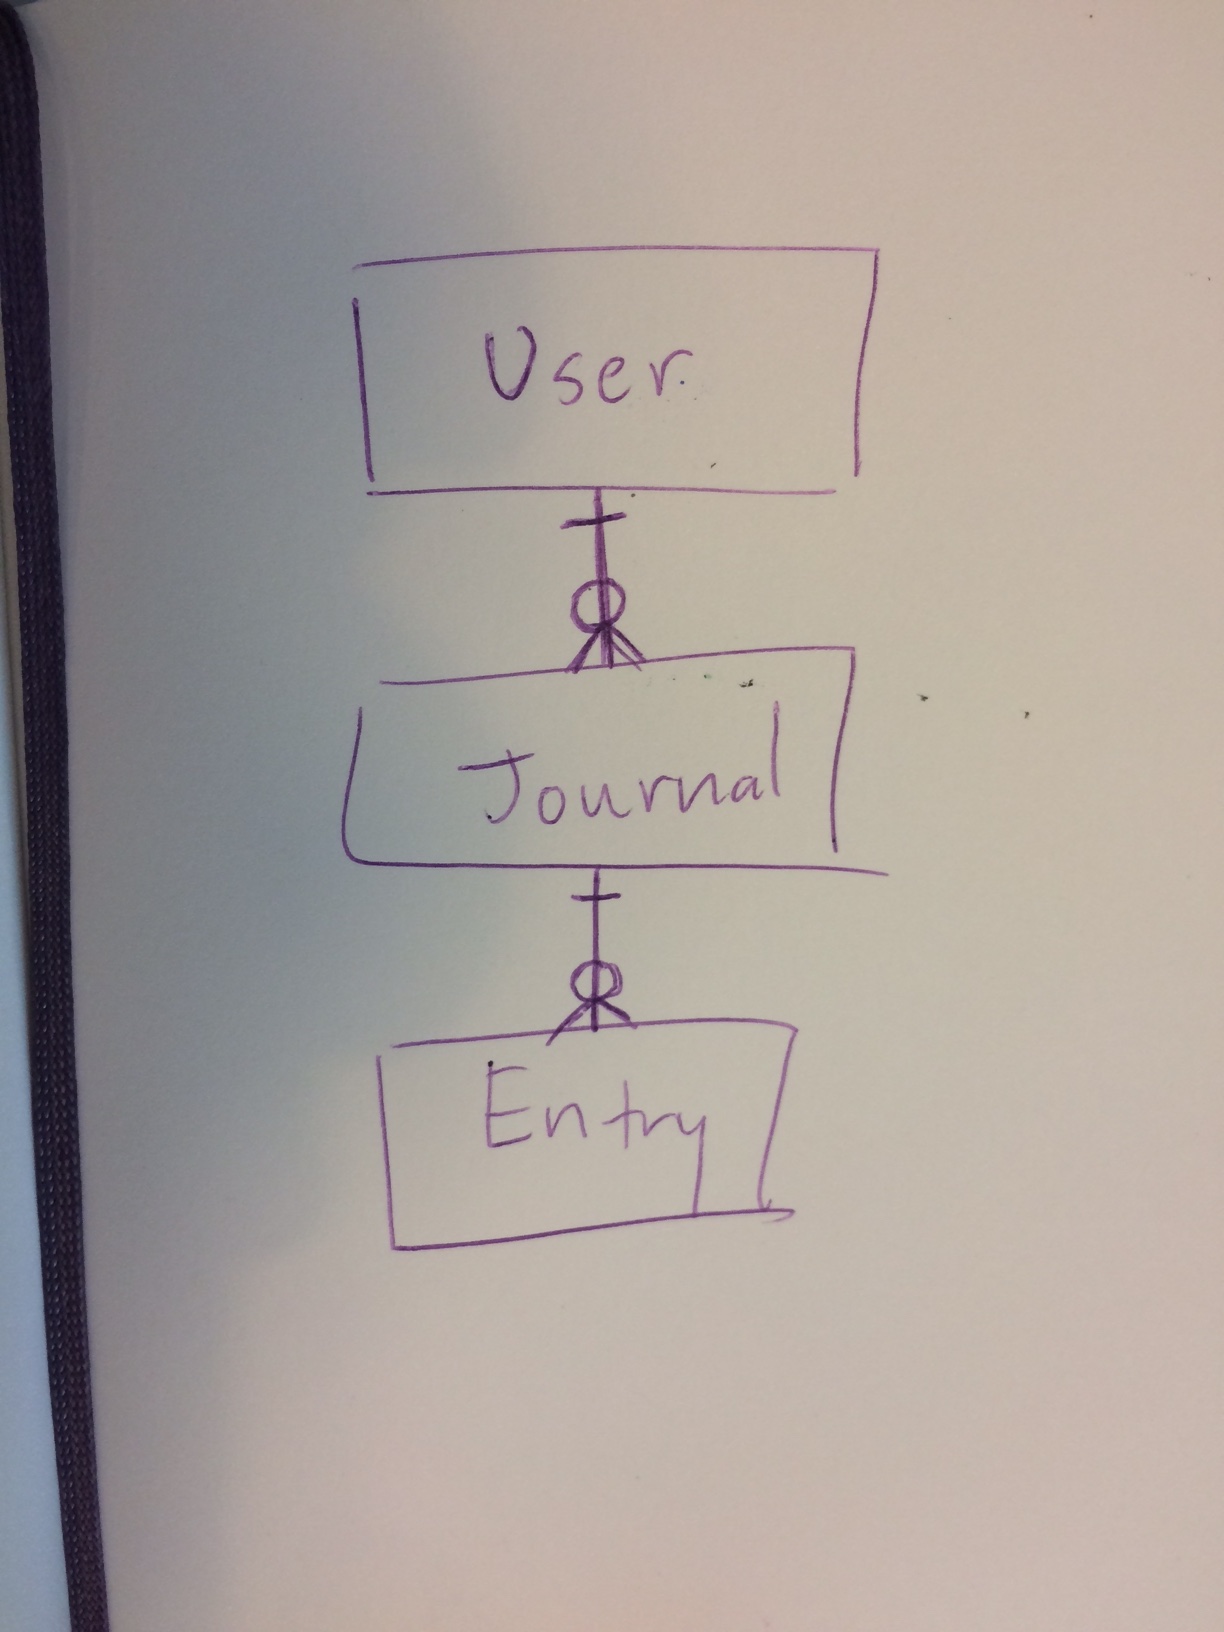 User
Journal
Entry